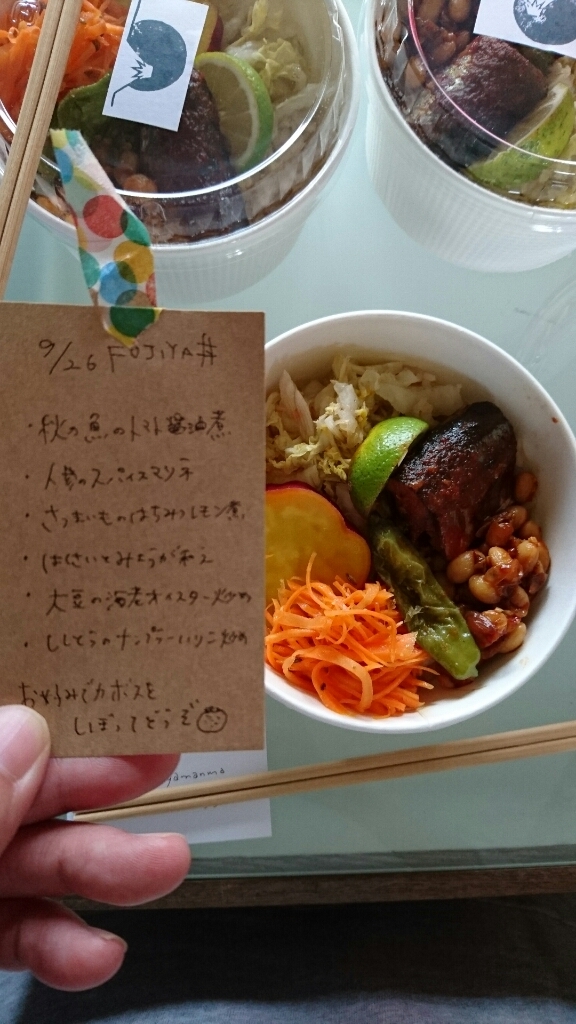 9/26 FUJIYA丼
・秋の魚のトマト醤油煮
・人参のスパイスマリネ
・さつまいものはちみつレモン煮
・はくさいとみょうが和え
・大豆の海老オイスター炒め
・ししとうのナンプラーいりこ炒め
お好みでカボスを
しぼってどうぞ